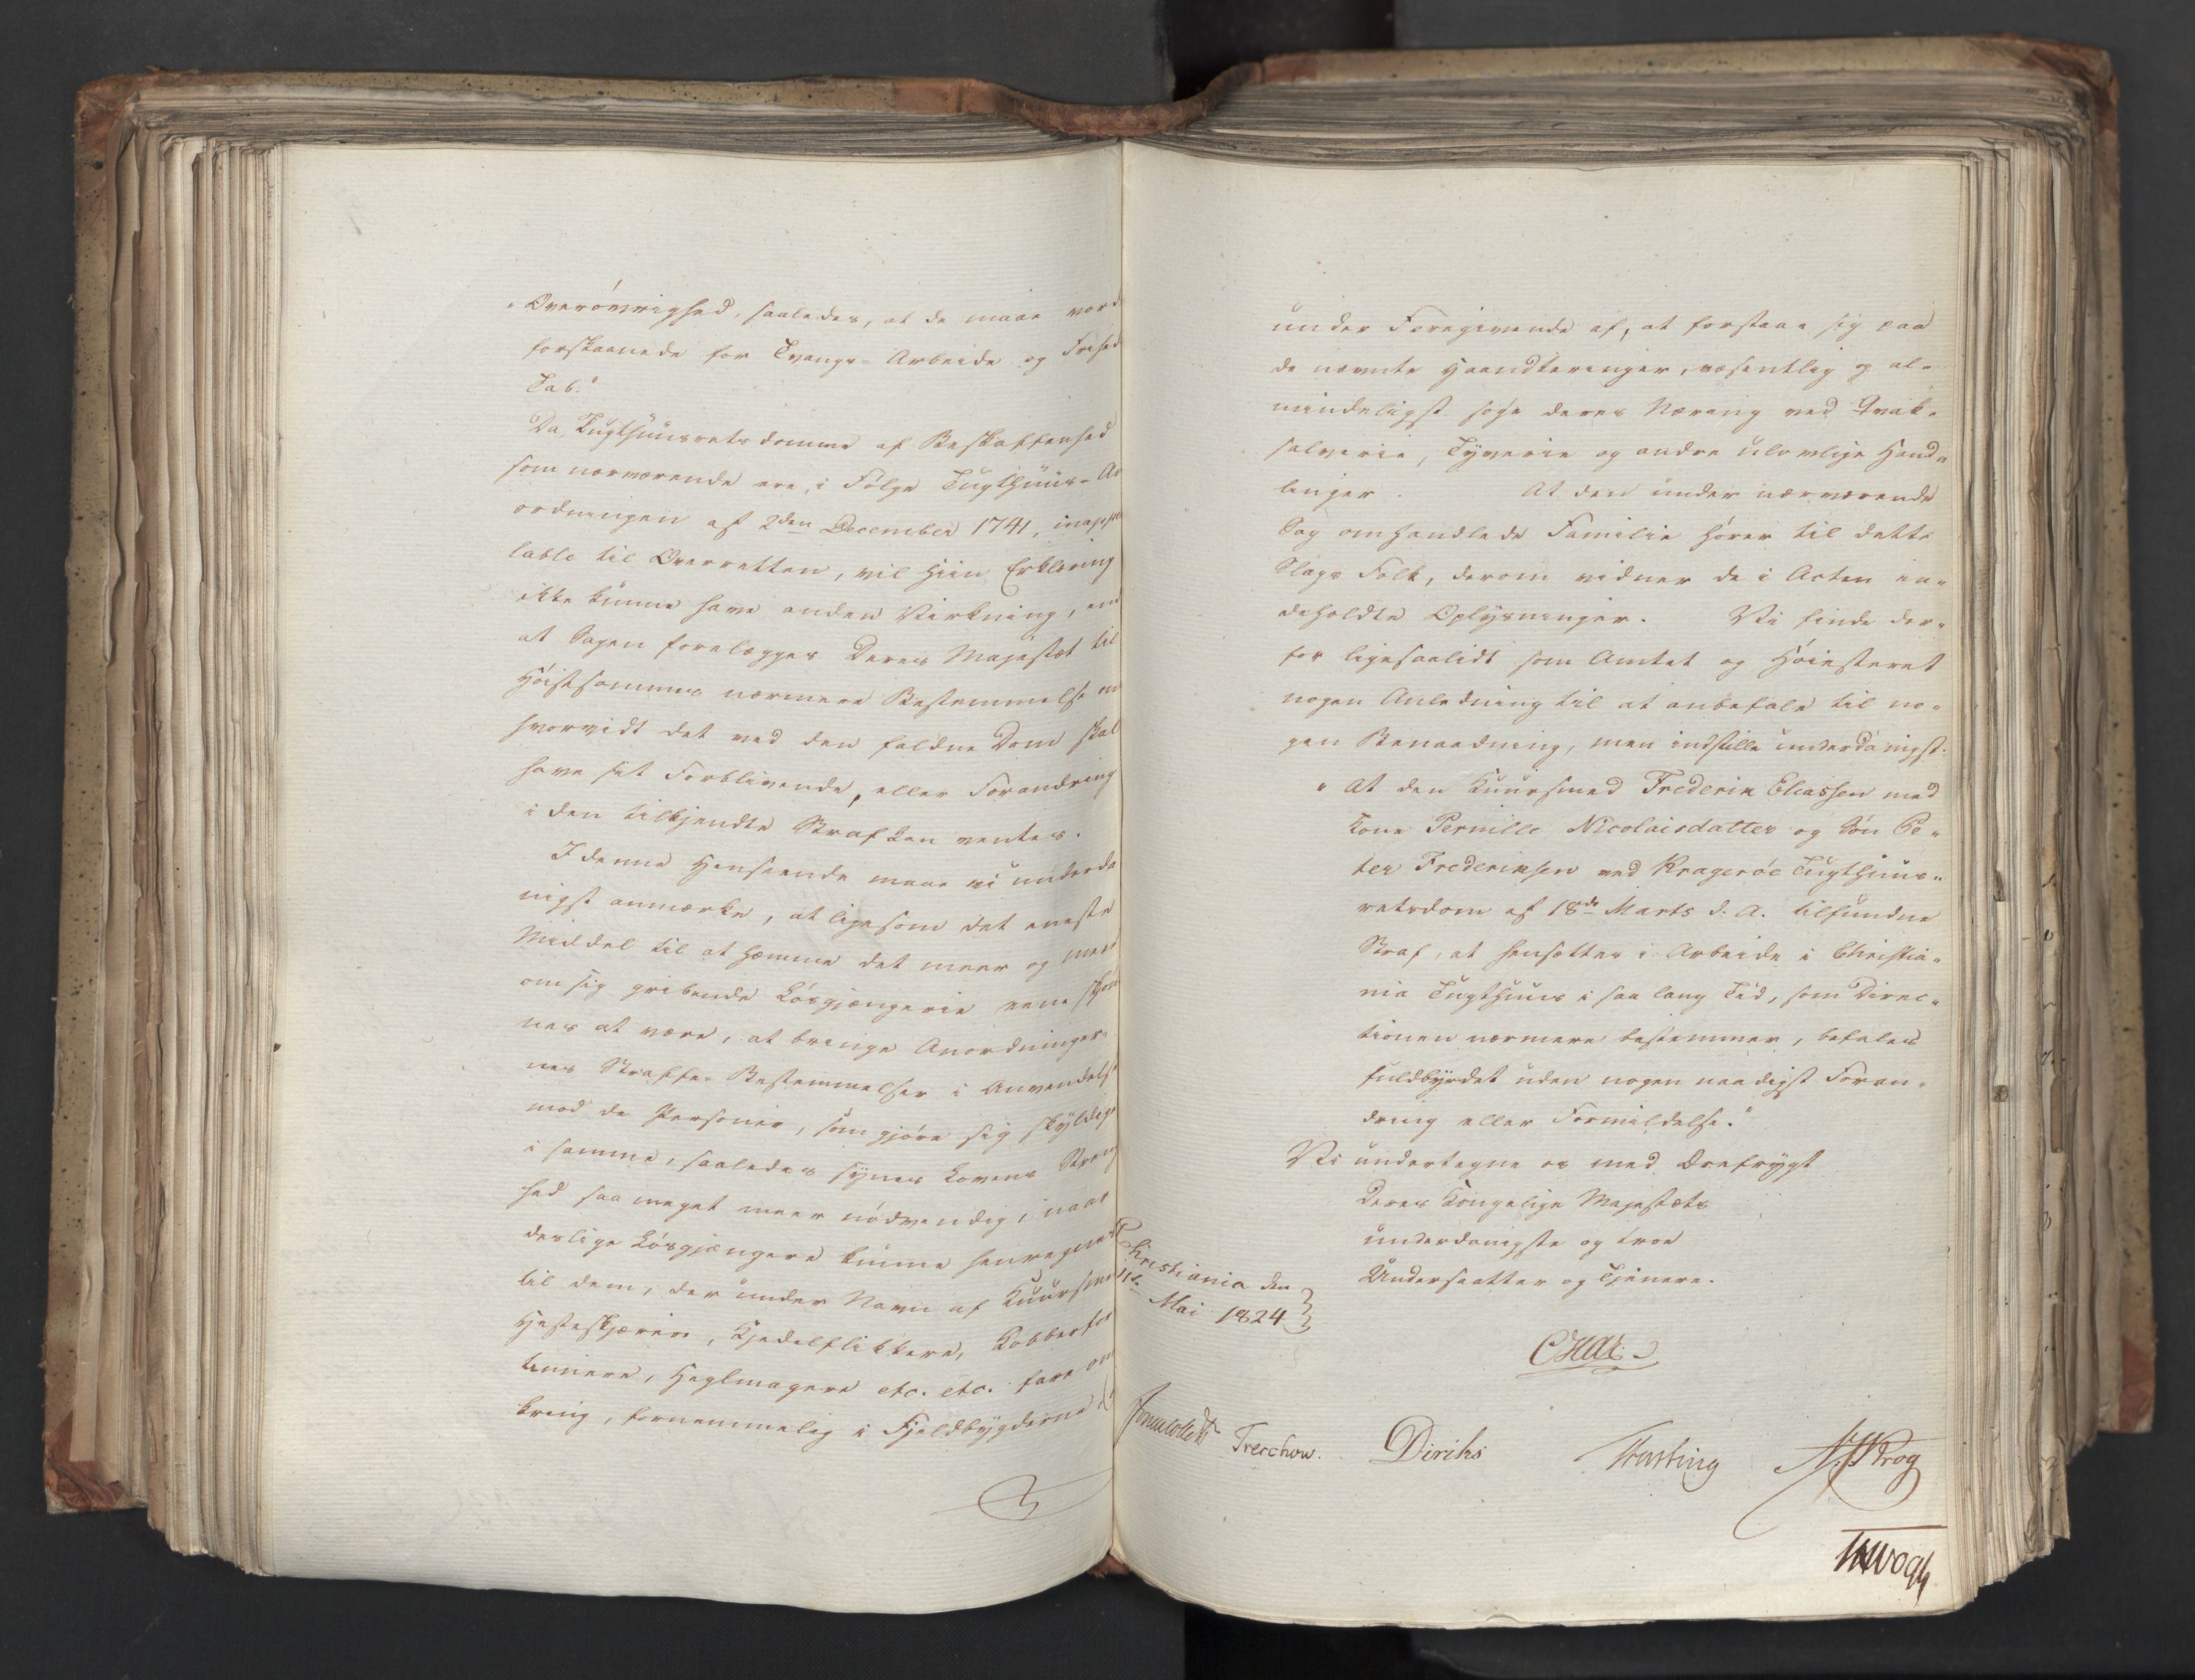 "Overøvrighed, saaledes, at de maae vord
forskaanede for Tvangs-Arbeide og Frihed
Tab."
Da Tugthuusrets domme af Beskaffenhed
som nærværende ere, i Følge Tugthuus-An
ordningen af 2den December 1741, inappe
lable til Overretten, vil hiin Erklæring
ikke kunne have anden Virkning, end
at Sagen forelægges Deres Majestæt til
Høistsammes nærmere Bestemmelse om
hvorvidt det ved den faldne Dom skal
have sit Forblivende, eller Forandring
i den tilkjendte Straf kan ventes.
I denne Henseende maae vi underda
nigst anmærke, at ligesom det eneste
Middel til at hæmme det meer og meer
om sig gribende Løsgjængerie
nes at være, at bringe Anordninger-
nes Straffe-Bestemmelser i Anvendelse
mod de Personer, som gjøre sig skyldige
i samme, saaledes synes Lovens Streng
hed saa meget meer nødvendig, naar
deslige Løsgjængere kunne henregnes
til dem, der under Navn af Kuursmed
Hesteskjærere, Kjedelflikkere, Kobberfor
tinnere, Heglmagere etc. etc. fare om
kring, fornemmelig i Fjeldbygderne
under Foregivende af, at forstaae sig paa
de nævnte Haandteringer, væsentlig og al-
mindeligst søge deres Næring ved Qvak-
salverie, Tyverie og andre ulovlige Hand-
linger. At den under nærværende
Sag omhandlede Familie hører til dette
Slags Folk, derom vidner de i Acten in-
deholdte Oplysninger. Vi finde der-
for ligesaalidt som Amtet og Høiesteret
nogen Anledning til at anbefale til no-
gen Benaadning, men indstille underdanigst:
"At den Kuursmed Frederik Eliassen med
Kone Pernille Nicolaisdatter og Søn Pe-
ter Frederiksen ved Kragerøe Tugthuus-
retsdom af 18de Marts d. A. tilfundne
Straf, at hensættes i Arbeide i Christia-
nia Tugthuus i saa lang Tid, som Direc-
tionen nærmere bestemmer, befales
fuldbyrdet uden nogen naadigst Foran-
dring eller Formildelse."
Vi undertegne os med Ærefrygt
Deres Kongelige Majestæts
underdanigste og troe
Undersaatter og Tjenere.
Christiania den
11te Mai 1824
Jonas Collett Treschow. Diriks Krog
Vogt